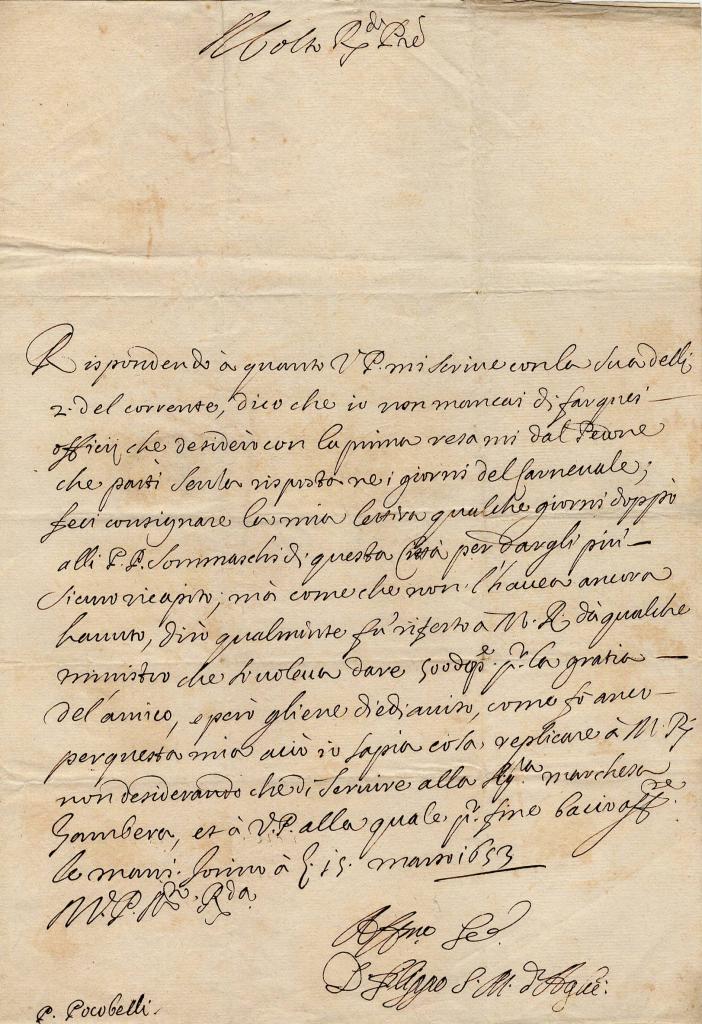 Molto R.do P.re
Rispondendo à quanto V P. mi scriue con la sua delli
2. del corrente, dico che io non mancai di far quei
officij che desiderò con la prima resami dal Pedone
che partì senza risposta ne i giorni del Carneuale;
feci consignare la mia lettera qualche giorni doppò
alli P. P. Sommaschi di questa Città per dargli più
sicuro ricapito; mà come che non l'hauea ancora
hauuto, dirò qualmente fù riferto à M. R. dà qualche
ministro che si uoleua dare 500 p.r la gratia
del'amico, e però gliene diedi auiso, come fò anco
per questa mia acciò io sapia cosa replicare à M. R.
non desiderando che di seruire alla Sig.ra marchesa
Gambera, et à V.P. alla quale p.r fine bacio aff.te
le mani. Torino à li 15. marzo 1653
D. P. M.to R.da
Aff.mo Se.
D. Filippo S. M. d'Agliè.
P. Pocobelli.